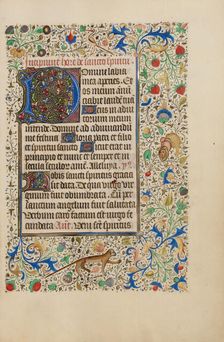 Incipiunt hore de sancto spiritu
Domine labia
mea aperies. Et
os meum annu
ciabit laudē tuā
Deus in
adiutorium meum
intende. Domine ad adiuuandū
me festina. Gloria patri et
filio et spiritui sancto. Sicut erat in
principio et nunc et semper et in
secula seculorū amē. Alleluya.
Nobis sancti spiritus gra
sit data. De qua uirgo vir
ginum fuit obumbrata. Cū per
sanctum angelum fuit salutata
Verbum caro factum est uirgo fe
cundata Ant. Veni sancte spiritus